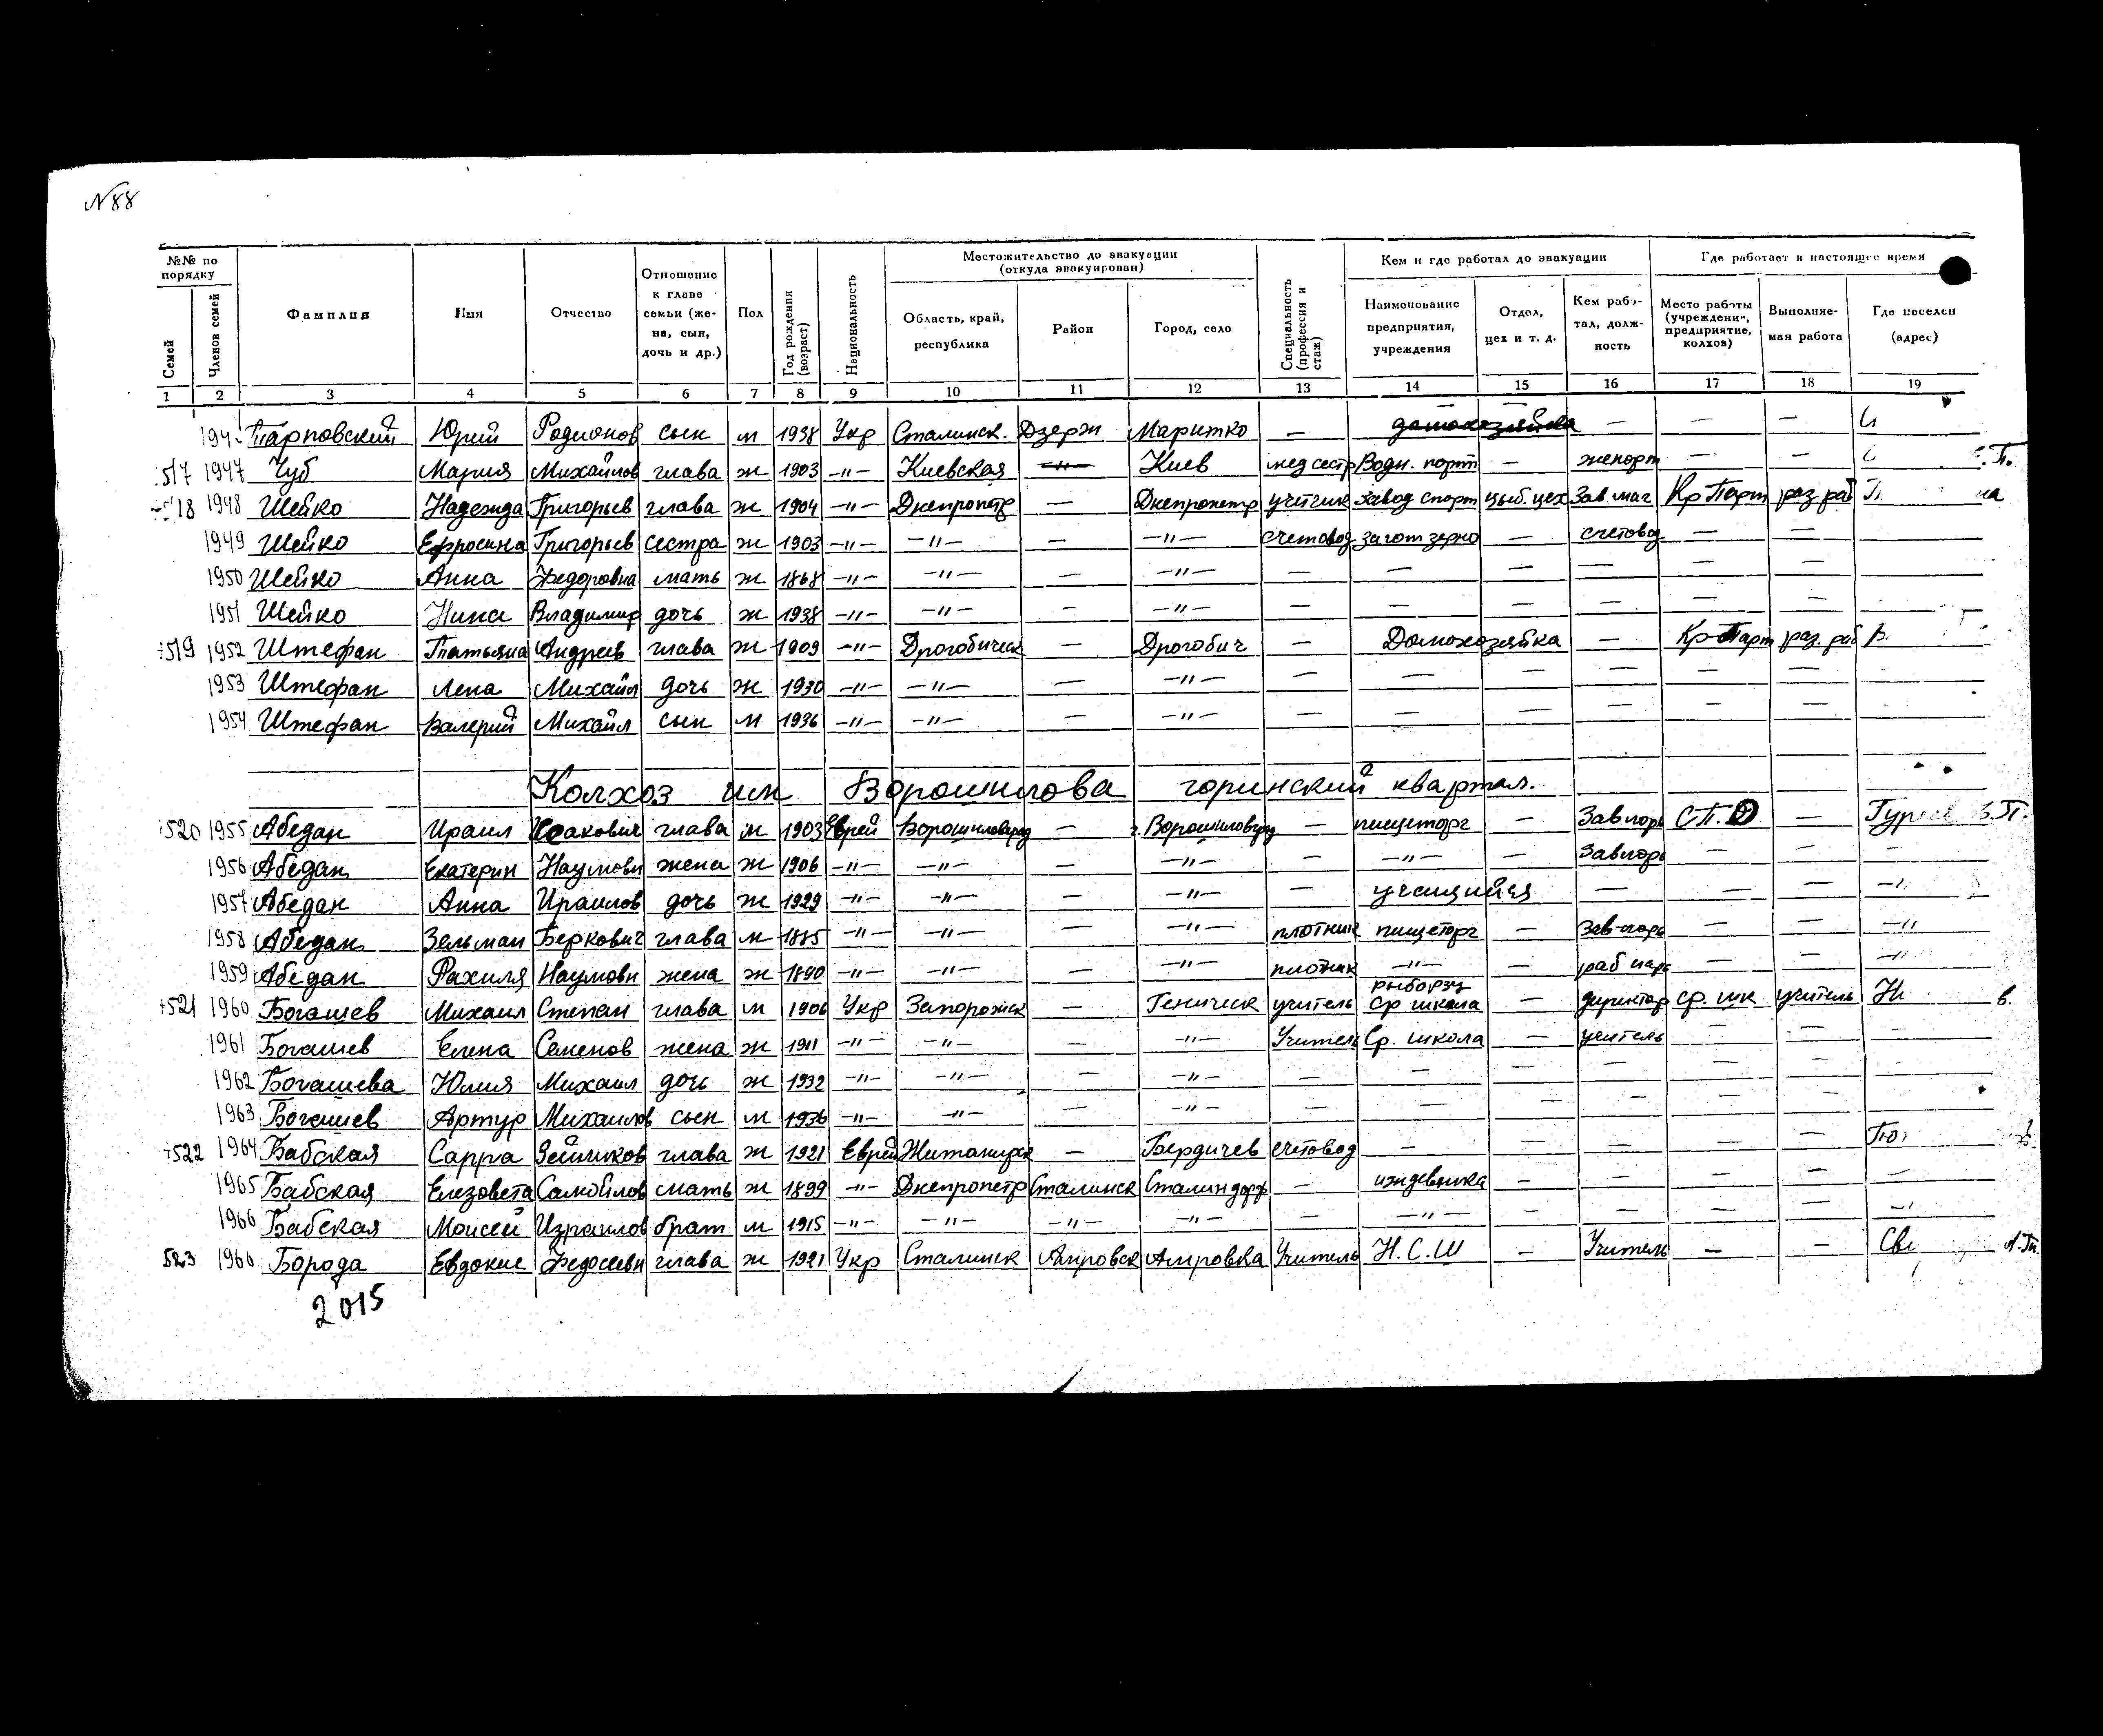 N88
№№ по порядку | Фамилия | Имя | Отчество | Отношение к главе семьи (жена, сын, дочь и др.) | Пол | Год рождения (возраст) | Национальность | Местожительство до эвакуации (откуда эвакуирован) | Специальность (профессия и стаж) | Кем и где работал до эвакуации | Где работает в настоящее время
Семей | Членов семей | Область, край, республика | Район | Город, село | Наименование предприятия, учреждения | Отдел, цех и т. д. | Кем работал, должность | Место работы (учреждение, предприятие, колхоз) | Выполняемая работа | Где поселен (адрес)
1 2 3 4 5 6 7 8 9 10 11 12 13 14 15 16 17 18 19
Юрий Родионов сын м 1938 Укр Сталинск. Дзерж — — — —
517 1947 Чуб Мария Михайлов глава ж 1903 -"- Киевская Киев мед сестр Водн. порт — — —
18 1948 Шейко Надежда Григорьев глава ж 1904 -"- Днепропетр — Днепропетр учетчик завод спорт Зав маг Кр Парт раз раб
1949 Шейко Ефросина Григорьев сестра ж 1903 -"- -"- — -"- счетовод загот зерно — счетовод — —
1950 Шейко Анна Федоровна мать ж 1868 -"- -"- — -"- — — — — — —
1951 Шейко Нина Владимир дочь ж 1938 -"- -"- — -"- — — — — — —
519 1952 Штефан Татьяна Андреев глава ж 1909 -"- Дрогобическ — Дрогобич — Домохозяйка — Кр Парт раз. раб
1953 Штефан Лена Михайл дочь ж 1930 -"- -"- — -"- — — — — — —
1954 Штефан Валерий Михайл сын м 1936 -"- -"- — -"- — — — — — —
Колхоз им Ворошилова горинский квартал.
520 1955 Абедан Ираил Исакович глава м 1903 Еврей Ворошиловград — г. Ворошиловград — пищеторг — С.П.О —
1956 Абедан Екатерин Наумовн жена ж 1906 -"- -"- — -"- — -"- — — —
1957 Абедан Анна Ираилов дочь ж 1929 -"- -"- — -"- — учащийся — — — -"-
1958 Абедан Зельман Беркович глава м 1885 -"- -"- — -"- плотник пищеторг — — — -"-
1959 Абедан Рахиля Наумовн жена ж 1890 -"- -"- — -"- плотник -"- — — — -"-
521 1960 Богашев Михаил Степан глава м 1906 Укр Запорожск — Геническ учитель Ср школа — директор ср. шк учитель
1961 Богашев Елена Семенов жена ж 1911 -"- -"- — -"- Учитель Ср. школа — учитель — — —
1962 Богашева Юлия Михаил дочь ж 1932 -"- -"- — -"- — — — — — — —
1963 Богашев Артур Михаилов сын м 1936 -"- -"- — -"- — — — — — —
522 1964 Бабская Сарра глава ж 1921 Еврей — Бердичев счетовод — — — — —
1965 Бабская Елезовета Самойлов мать ж 1899 -"- Днепропетр Сталинск Сталиндорф — иждевенка — — — — —
1966 Бабская Моисей Израилов брат м 1915 -"- -"- -"- -"- — -"- — — — — -"
523 1966 Борода Евдокие Федосеевн глава ж 1921 Укр Сталинск Учитель Н.С.Ш — Учитель — —
2015